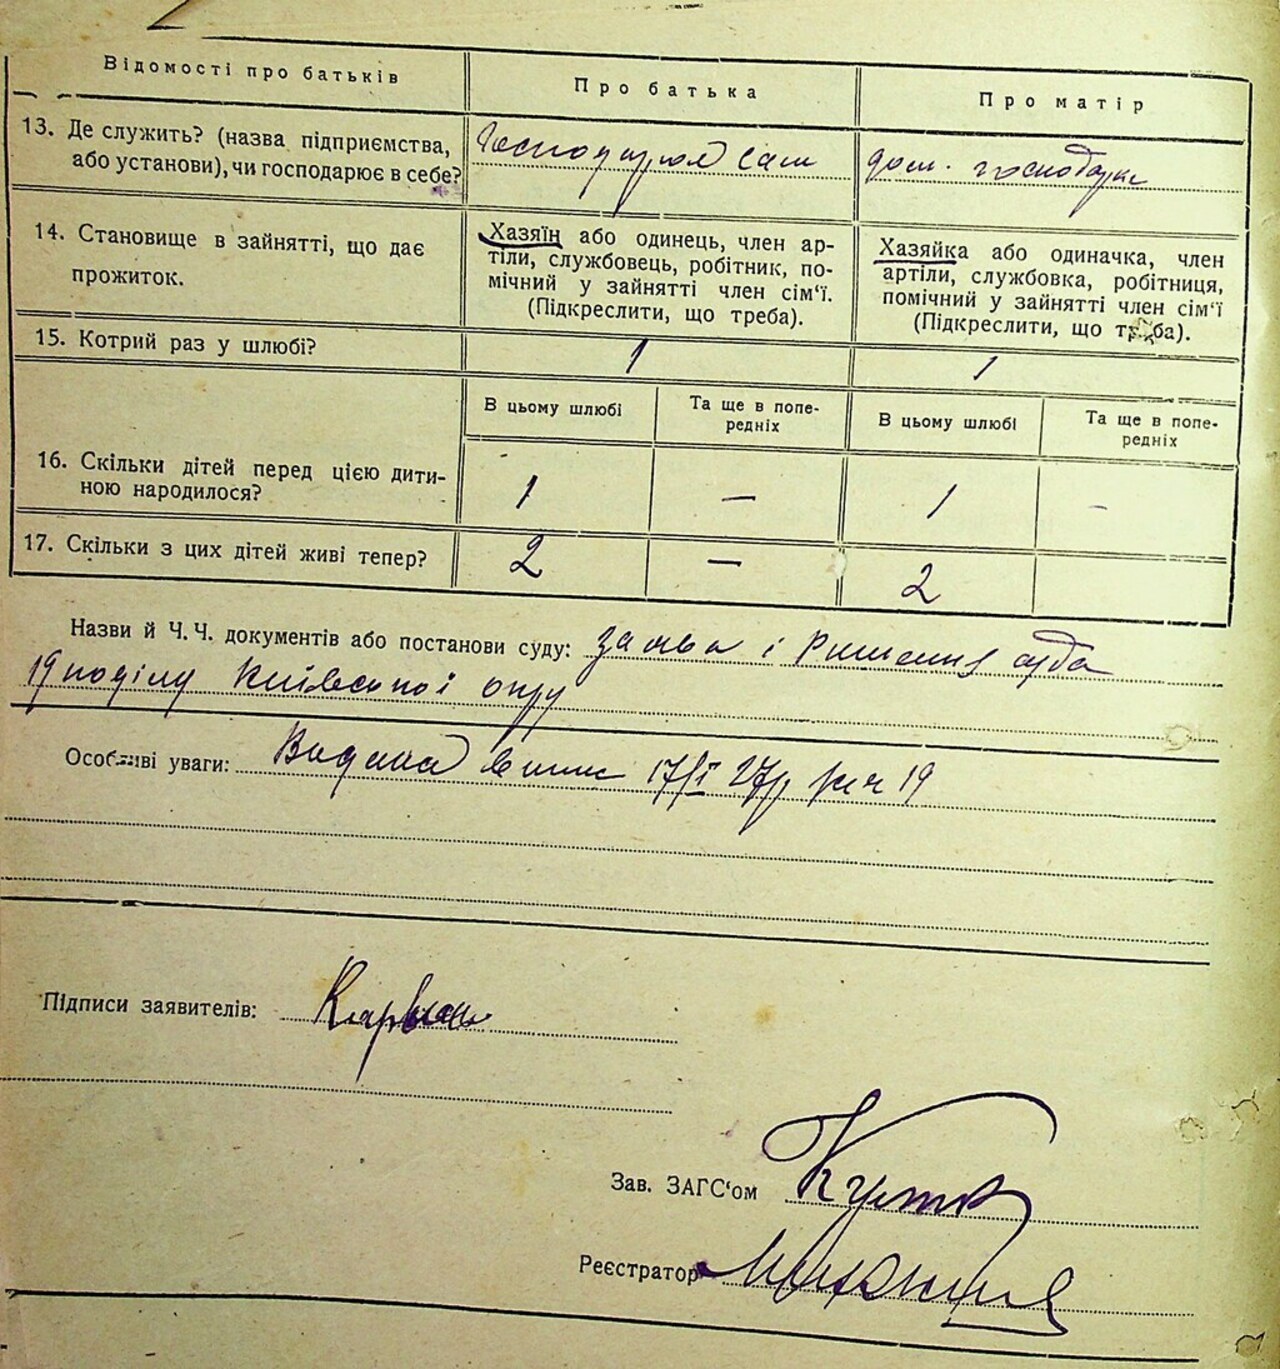 Відомості про батьків
Про батька
Про матір
13. Де служить? (назва підприємства,
або установи), чи господарює в себе?
Господарює сам
дом. господарка
14. Становище в зайнятті, що дає
прожиток.
Хазяїн або одинець, член ар-
тіли, службовець, робітник, по-
мічний у зайнятті член сім'ї.
(Підкреслити, що треба).
Хазяйка або одиначка, член
артіли, службовка, робітниця,
помічний у зайнятті член сім'ї
(Підкреслити, що треба).
15. Котрий раз у шлюбі?
1
1
В цьому шлюбі
Та ще в попе-
редніх
В цьому шлюбі
Та ще в попе-
редніх
16. Скільки дітей перед цією дити-
ною народилося?
1
—
1
-
17. Скільки з цих дітей живі тепер?
2
—
2
Назви й Ч.Ч. документів або постанови суду: заява і суда
19 поділу Київської окру
Особливі уваги: 17/I 27р. 19
Підписи заявителів:
Зав. ЗАГС'ом
Реєстратор